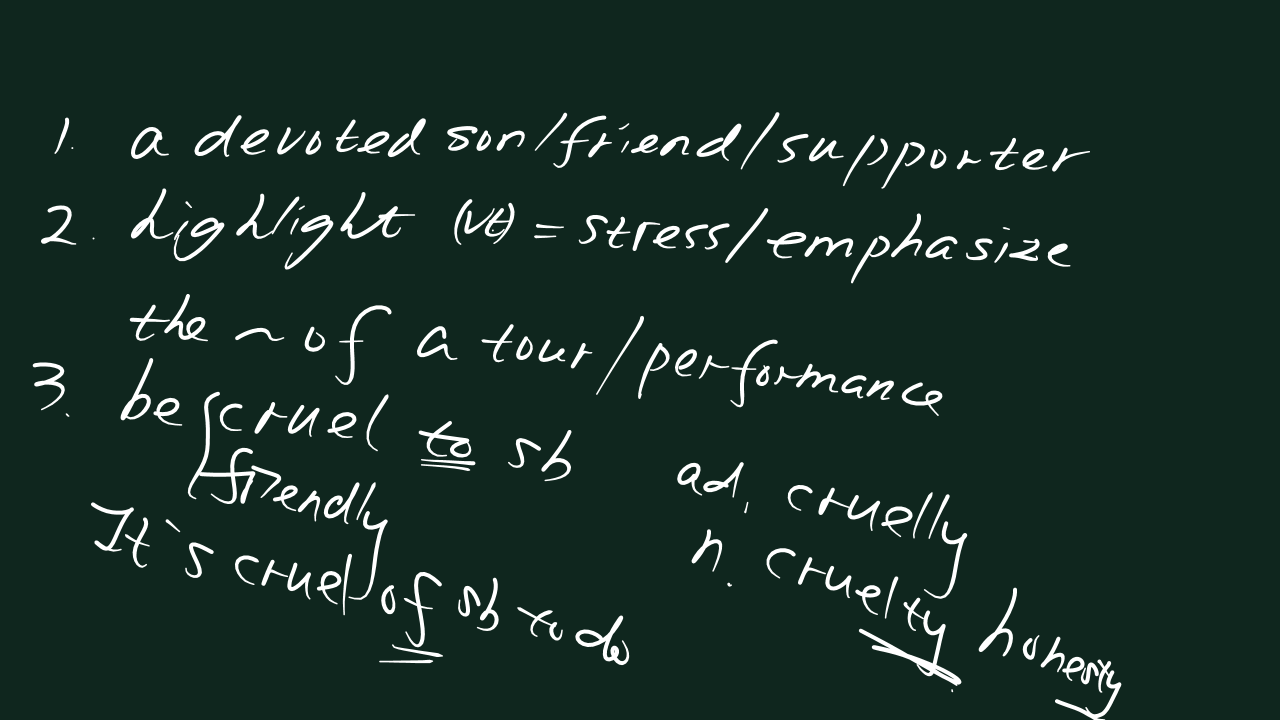 1. a devoted son/friend/supporter
2. highlight (vt) = stress/emphasize
the ~ of a tour/performance
3. be cruel to sb
friendly
It's cruel of sb to do
ad. cruelly
n. cruelty honesty